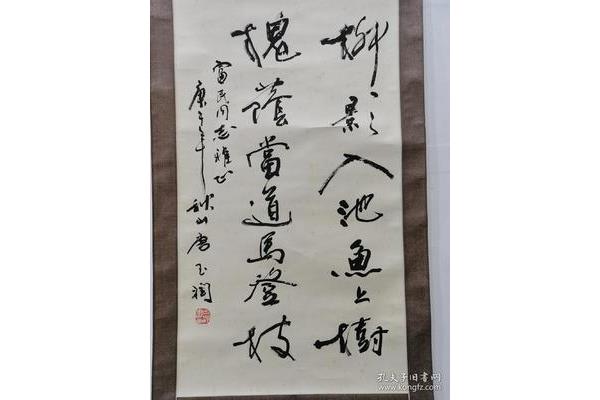 柳影入池魚上樹
槐蔭當道馬登枝
富民同志雅正
庚年秋山唐玉潤
孔夫子旧书网
www.kongfz.com